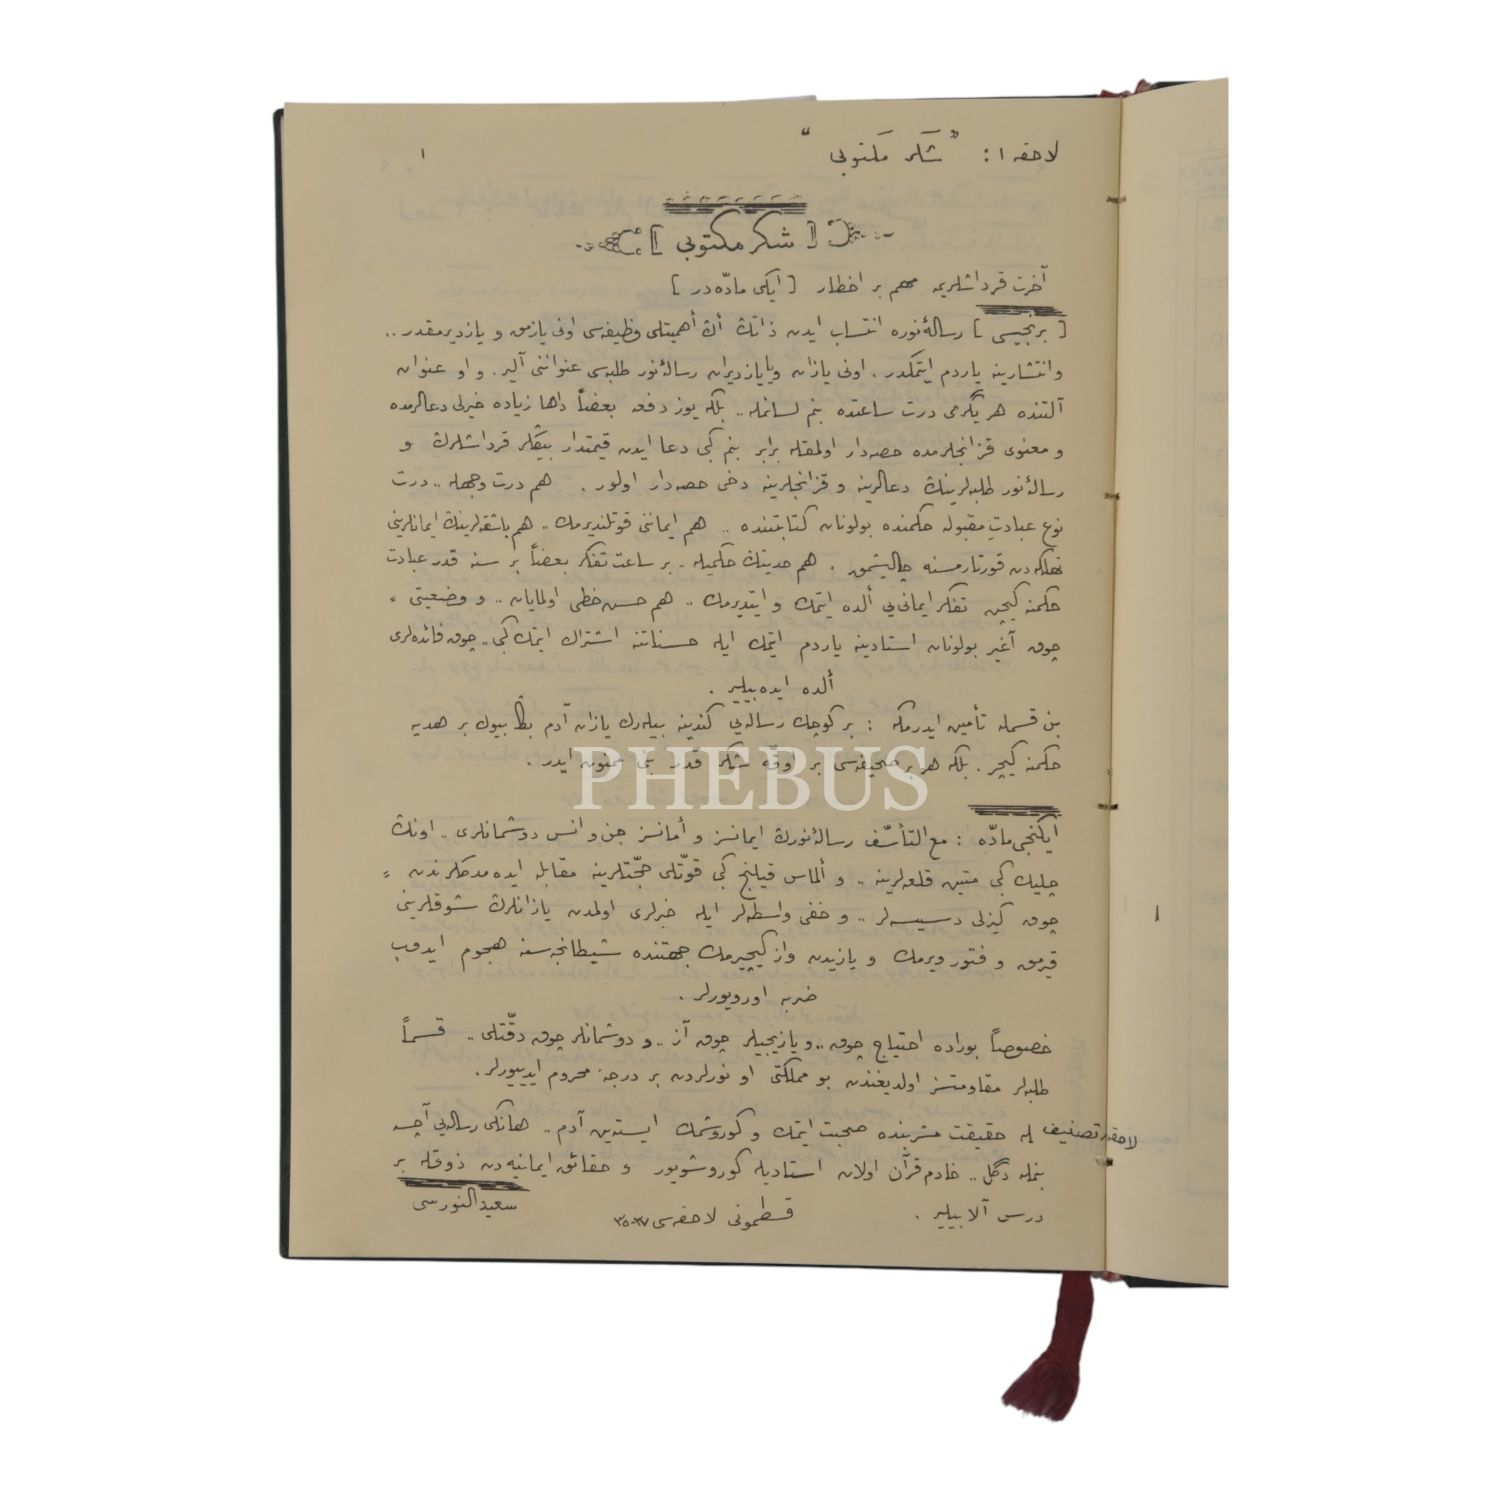 لاحقه ١ : " شَكَر مَكتوبى "
١
[ شكر مكتوبى ]
آخرت قرداشلريمه مهم بر اخطار [ ايكى مادّه در ]
[ برنجيسى ] رسالۀ نوره انتساب ايدن ذاتڭ أڭ أهميتلى وظيفه‌سى اونى يازمق و يازديرمقدر ..
و انتشارينه ياردم ايتمكدر . اونى يازان ويا يازديران رسالۀ نور طلبه‌سى عنواننى آلير . و او عنوان
آلتنده هر يگرمى درت ساعتده بنم لسانمله .. بلكه يوز دفعه بعضاً داها زياده خيرلى دعالرمده
و معنوى قزانجلرمده حصه‌دار اولمقله برابر بنم كبى دعا ايدن قيمتدار بيڭلر قرداشلرڭ و
رسالۀ نور طلبه‌لرينڭ دعالرينه و قزانجلرينه دخى حصه‌دار اولور . هم درت وجهله .. درت
نوع عبادتِ مقبوله حكمنده بولونان كتابتنده .. هم ايماننى قوتلنديرمك .. هم باشقه‌لرينڭ ايمانلرينى
تهلكه‌دن قورتارمسنه چاليشمق . هم حديثڭ حكميله .. بر ساعت تفكر بعضاً بر سنه قدر عبادت
حكمنه كيچن تفكر ايمانى‌يى ألده ايتمك و ايتديرمك .. هم حسن خطى اولمايان .. و وضعيتى
چوق آغير بولونان استادينه ياردم ايتمك ايله حسناتنه اشتراك ايتمك كبى .. چوق فائده‌لرى
ألده ايده‌بيلير .
بن قسمله تأمين ايدرمكه : بر كوچك رساله‌يى كندينه بيله‌رك يازان آدم بڭا بيوك بر هديه
حكمنه كيچر . بلكه هر بر صحيفه‌سى بر اوقّه شكر قدر بنى ممنون ايدر .
PHEBUS
ايكنجى مادّه : مع التأسّف رسالۀ نورڭ ايمانسز و أمانسز جن و انس دوشمانلرى .. اونڭ
چليك كبى متين قلعه‌لرينه .. و ألماس قيلنج كبى قوّتلى حجّتلرينه مقابله ايده‌مدكلرندن
چوق كيزلى دسيسه‌لر .. و خفى واسطه‌لر ايله خبرلرى اولمدن يازانلرڭ شوقلرينى
قيرمق و فتور ويرمك و يازيدن واز كيچيرمك جهتنده شيطانجه‌سنه هجوم ايدوب
ضربه اورويورلر .
خصوصاً بوراده احتياج چوق .. و يازيجيلر چوق آز .. و دوشمانلر چوق دقّتلى .. قسماً
طلبه‌لر مقاومتسز اولديغندن بو مملكتى او نورلردن بر درجه محروم ايدييورلر .
بنمله حقيقت مشربنده صحبت ايتمك و كوروشمك ايسته‌ين آدم .. هانكى رساله‌يى آچسه
لاحقه تصنيف
بنمله دگل .. خادم قرآن اولان استاديله كوروشويور و حقائق ايمانيه‌دن ذوقله بر
درس آلابيلير .
قسطمونى لاحقه‌سى ٣٧-٣٥
سعيد النورسى